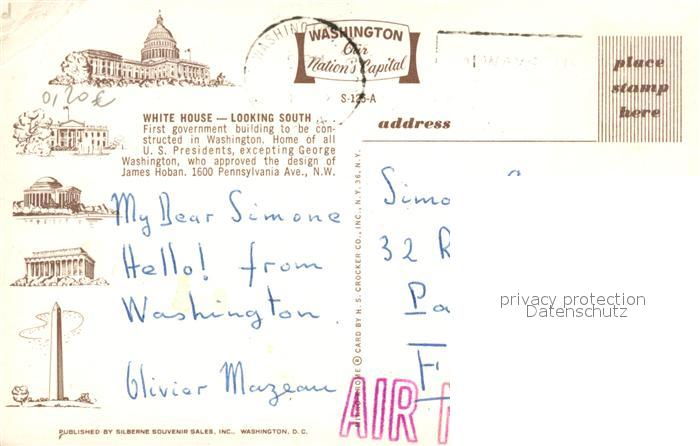 WASHINGTON
Our
Nation's Capital
S-125-A
place
stamp
here
address
0,20€
WHITE HOUSE — LOOKING SOUTH
First government building to be con-
structed in Washington. Home of all
U. S. Presidents, excepting George
Washington, who approved the design of
James Hoban. 1600 Pennsylvania Ave., N.W.
My Dear Simone
Hello! from
Washington.
Olivier Mazeau
CARD BY H. S. CROCKER CO., INC., N.Y. 36, N.Y.
Simo
32 R
Pa
F
privacy protection
Datenschutz
AIR
PUBLISHED BY SILBERNE SOUVENIR SALES, INC., WASHINGTON, D. C.